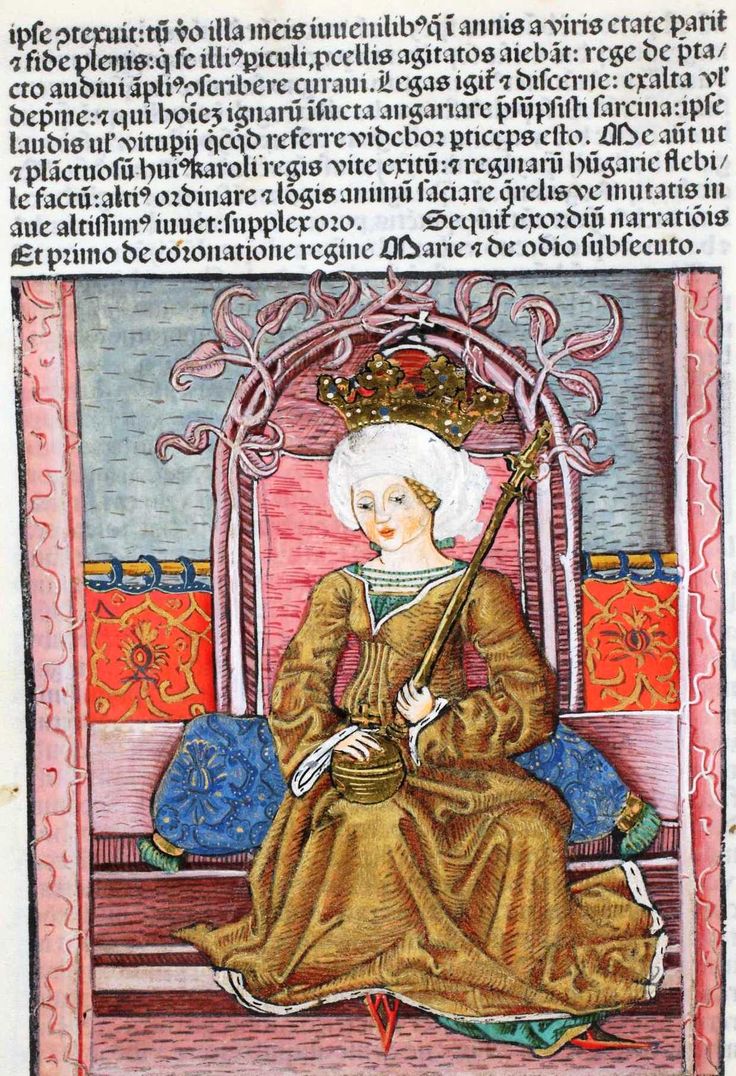 ipse ↄtexuit: tū v̓o illa meis iuuenilibꝰ q̄ ī annis a viris etate parit̓
⁊ fide plenis: q̨ se illiꝰ piculi, ꝓcellis agitatos aiebāt: rege de p̄ta/
cto audiui āpliꝰ ↄscribere curaui. Legas igit̓ ⁊ discerne: exalta vl̓
dep̄me: ⁊ qui hoīeꝫ ignarū īsucta angariare p̄sūpsisti sarcina: ipse
laudis vl̓ vituperij q̄cq̄d referre videbor ꝑticeps esto. Me aūt ut
⁊ plāctuosū huiꝰ karoli regis vite exitū: ⁊ reginarū hūgarie flebi/
le factū: altiꝰ ordinare ⁊ lōgis animū saciare q̄relis ve mutatis in
aue altissimꝰ iuuet: supplex oro. Sequit̓ exordiū narratiōis
Et primo de coronatione regine Marie ⁊ de odio subsecuto.